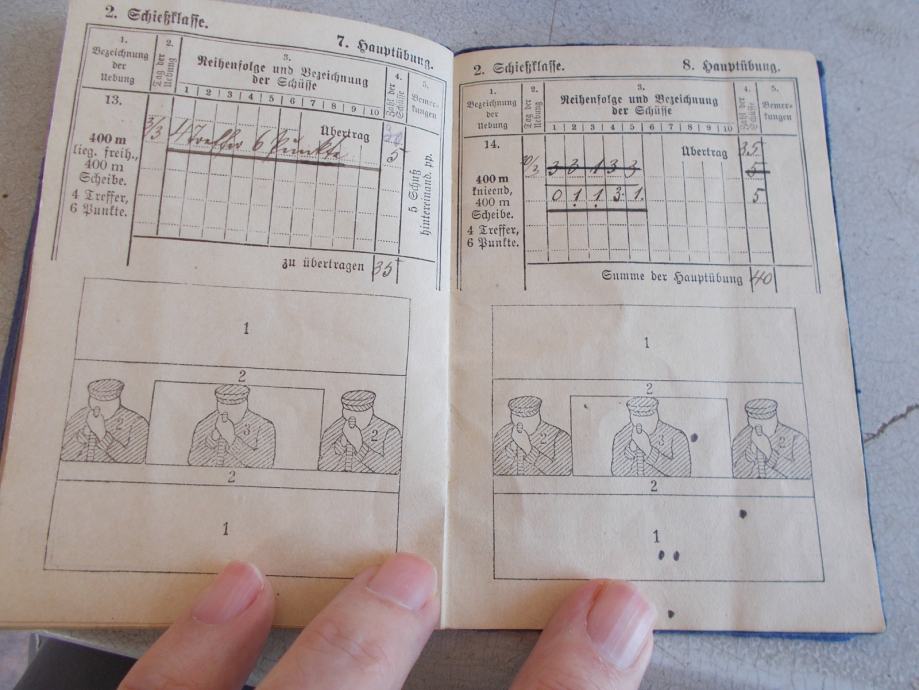 2. Schießklasse.
7. Hauptübung.
1.
Bezeichnung
der
Uebung
2.
Tag der
Uebung
3.
Reihenfolge und Bezeichnung
der Schüsse
1 2 3 4 5 6 7 8 9 10
4.
Zahl der
Schüsse
5.
Bemer-
kungen
13.
400 m
lieg. freih.,
400 m
Scheibe.
4 Treffer,
6 Punkte.
Übertrag
4 Treffer 6 Punkte
5
5 Schuß
hintereinand. pp.
zu übertragen 35
1
2
2
3
2
2
1
2. Schießklasse.
8. Hauptübung.
1.
Bezeichnung
der
Uebung
2.
Tag der
Uebung
3.
Reihenfolge und Bezeichnung
der Schüsse
1 2 3 4 5 6 7 8 9 10
4.
Zahl der
Schüsse
5.
Bemer-
kungen
14.
400 m
knieend,
400 m
Scheibe.
4 Treffer,
6 Punkte.
Übertrag 35
3 3 1 3 3 5
0 1 1 3 1 5
Summe der Hauptübung 40
1
2
2
3
2
2
1